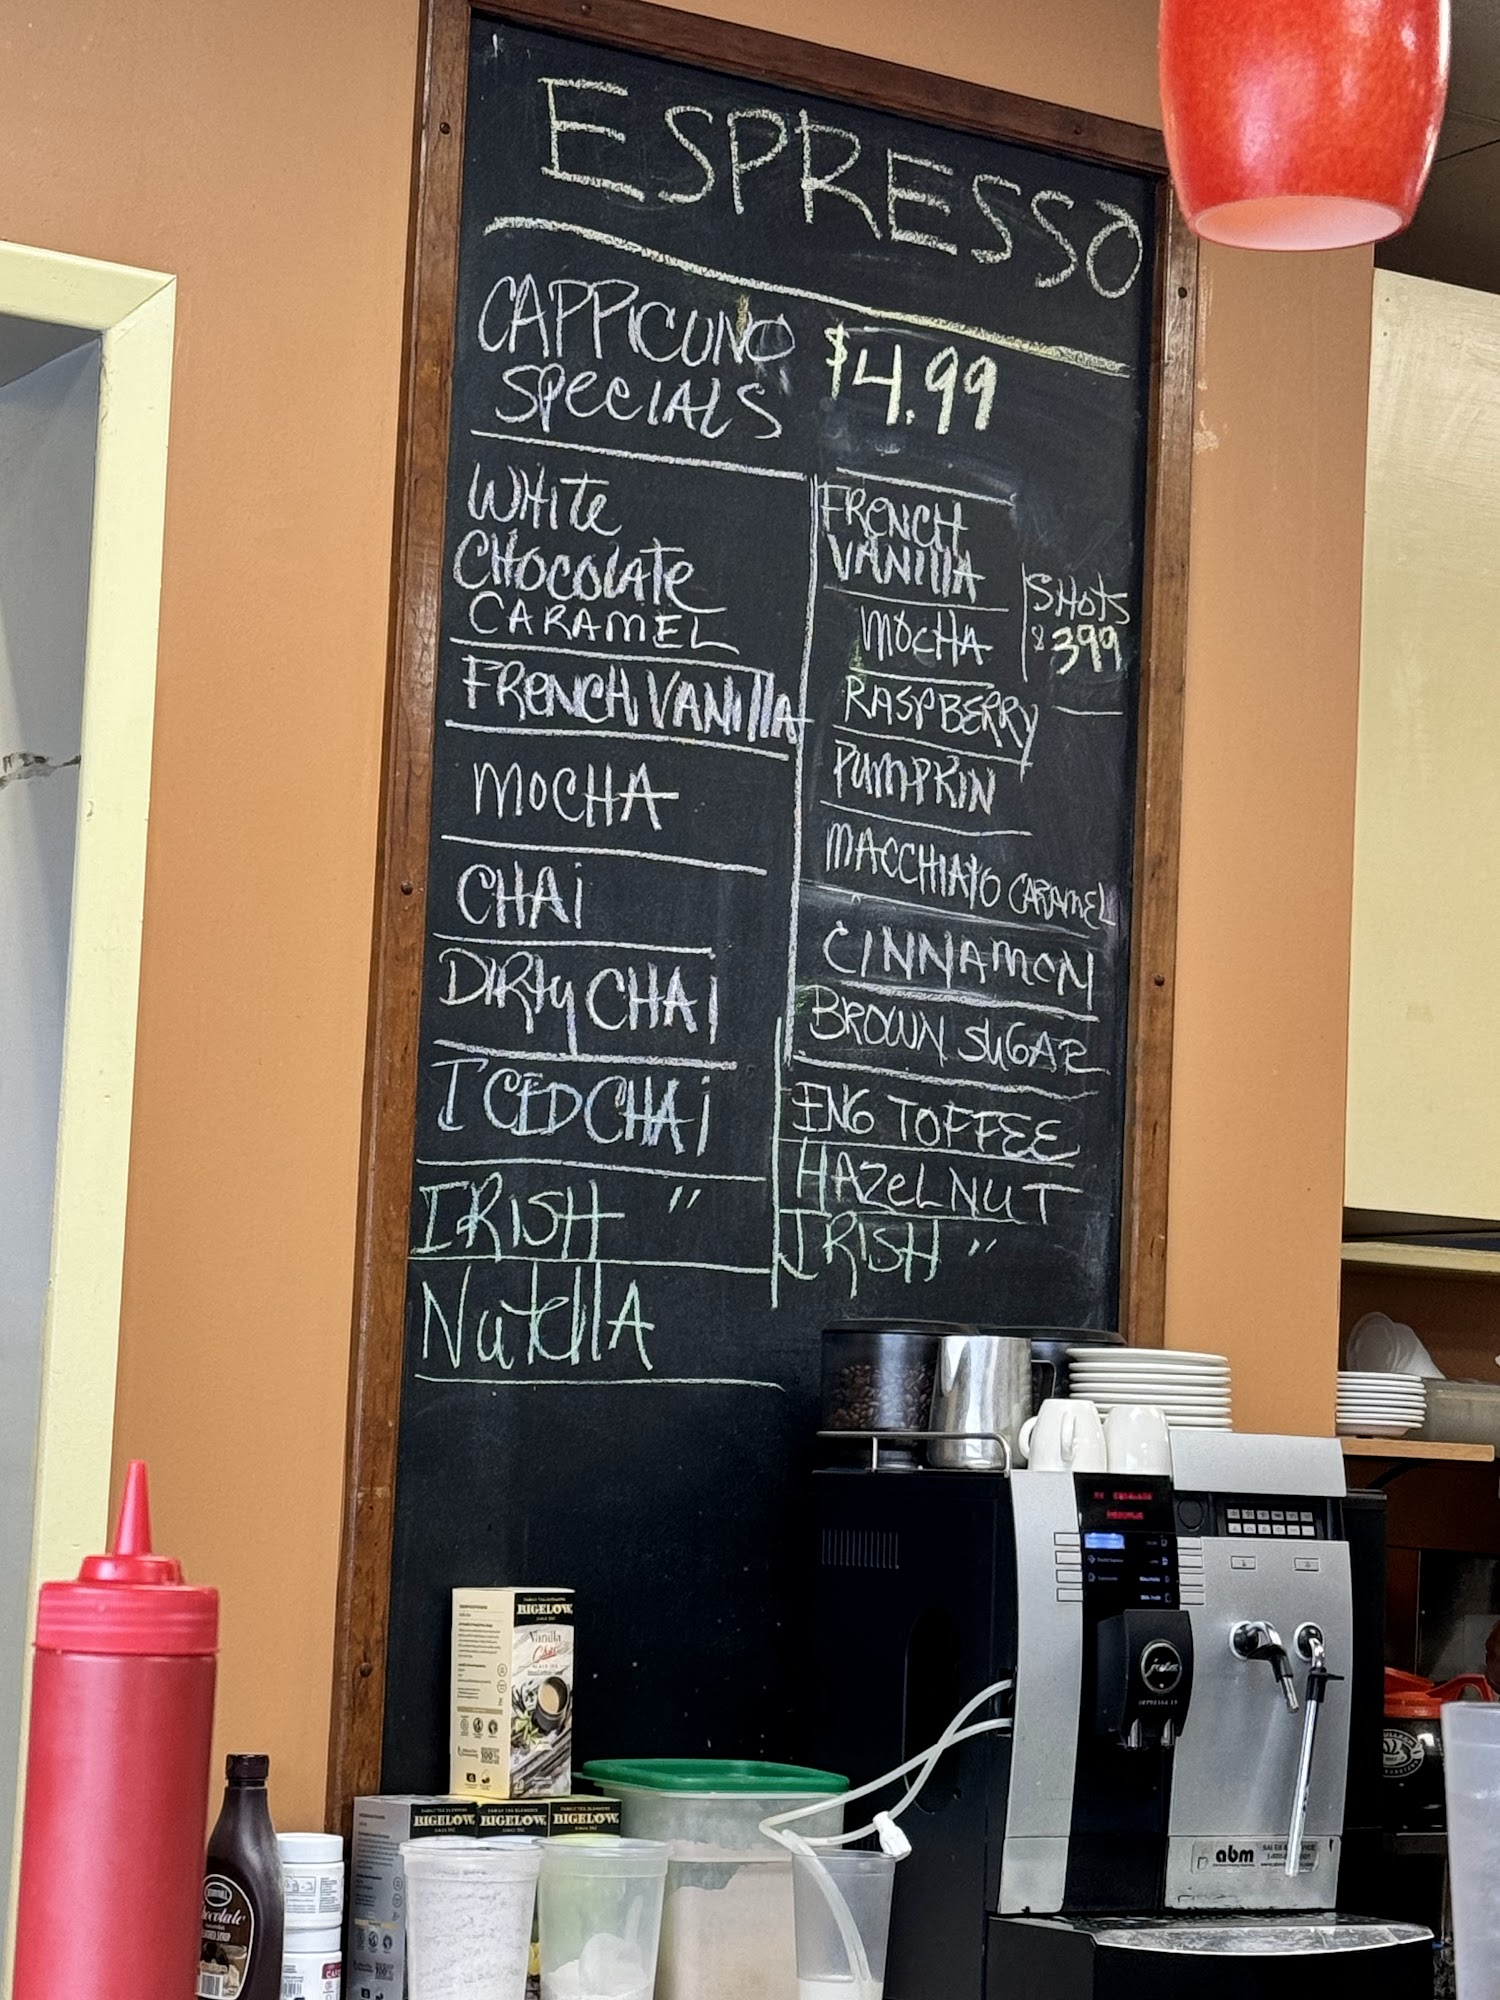 ESPRESSO
CAPPICUNO
SPECIALS
$4.99
WHITE
CHOCOLATE
CARAMEL
FRENCH VANIllA
MOCHA
CHAi
DIRty CHAi
ICED CHAi
IRISH "
NutellA
FRENCH
VANIllA
MOCHA
RASPBERRY
PUMPKIN
MACCHIATO CARAMEL
CINNAMON
BROWN SUGAR
ENG TOFFEE
HAZELNUT
IRISH "
SHOTS
$399
BIGELOW
Vanilla
Chai
BLACK TEA
100%
BIGELOW BIGELOW BIGELOW
jura
IMPRESSA X9
abm
SALES & SERVICE